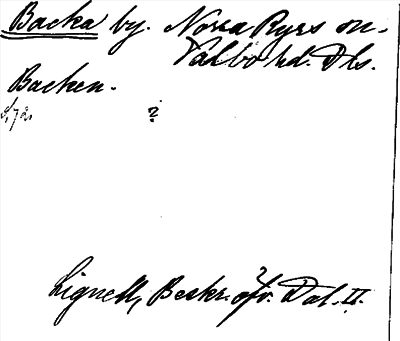 Backa by. Norra Ryrs sn.
Valbo hd. Dls.
Backen.
?
Lignell, Beskr. öfv. Dal. II.